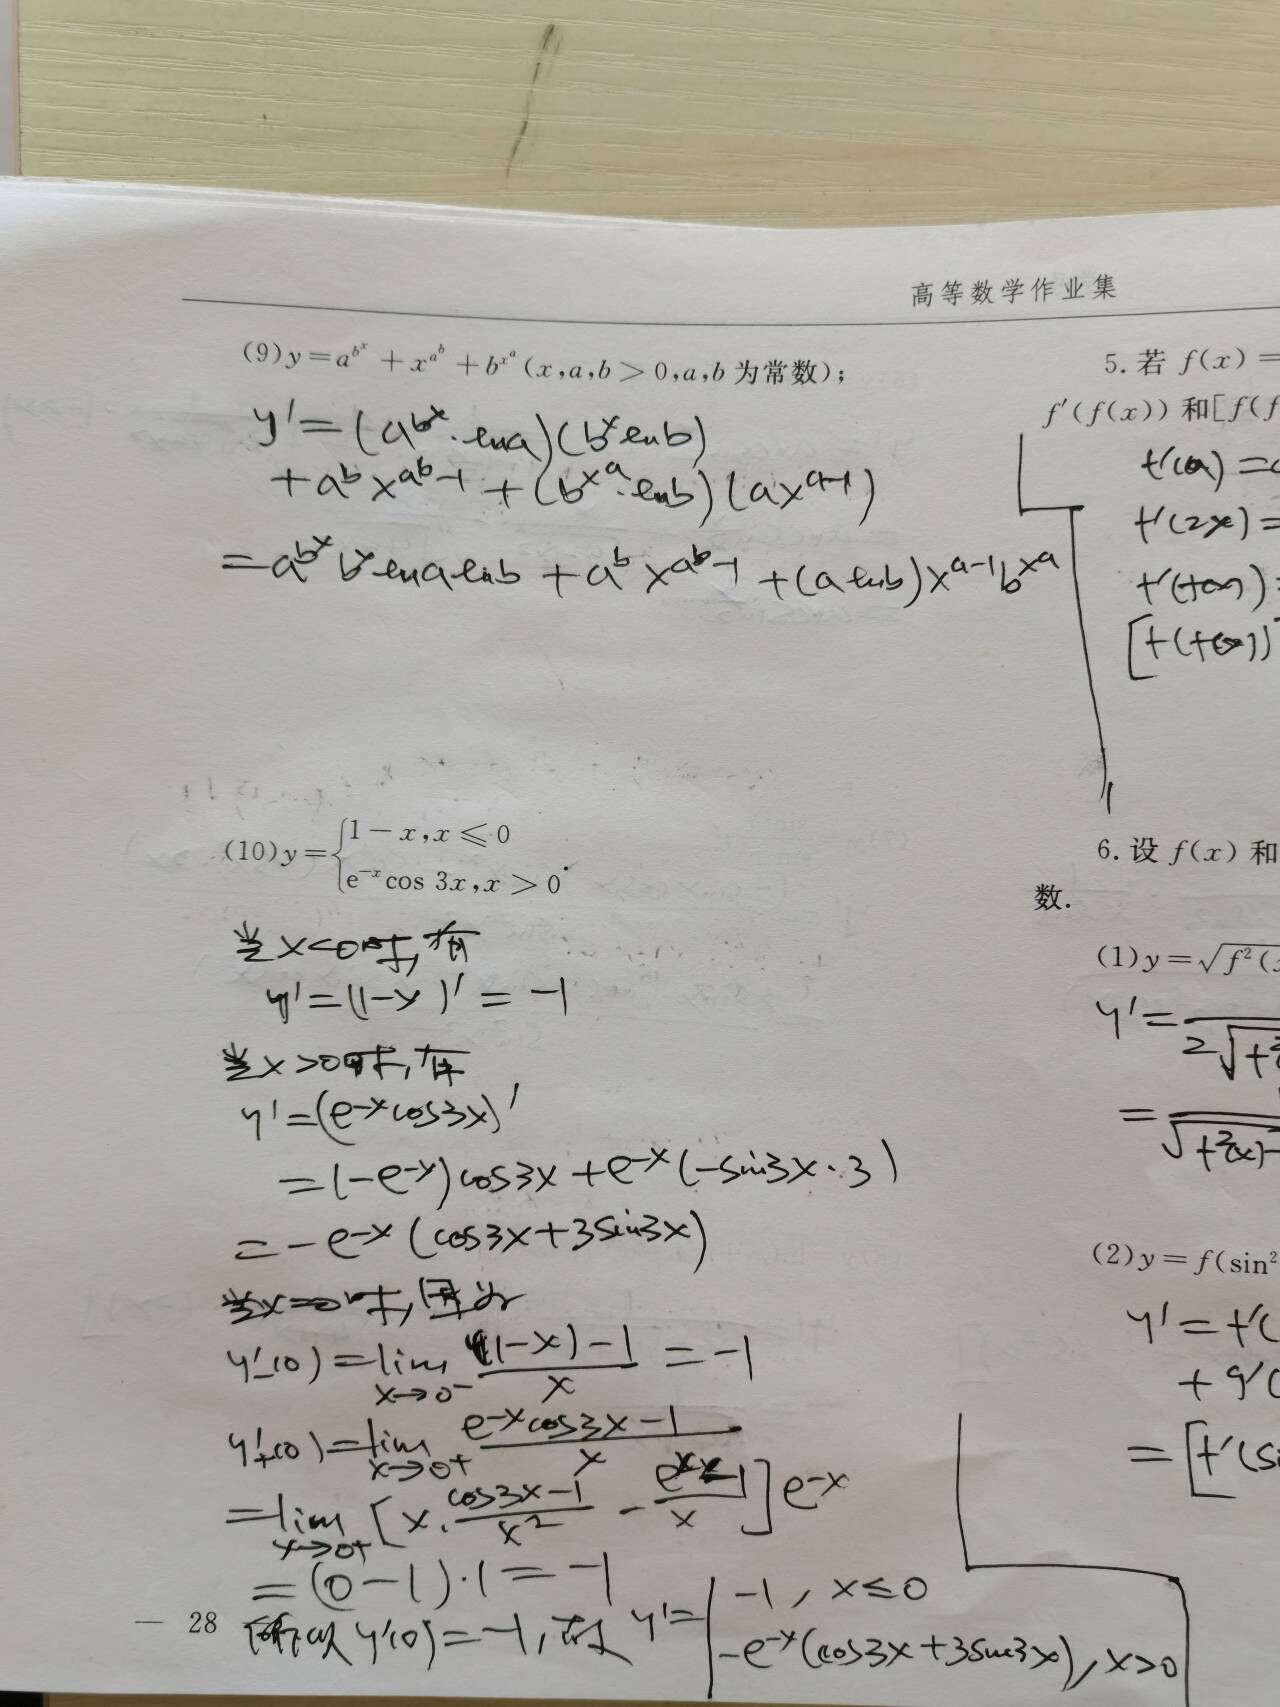 高等数学作业集
(9)y=a^{b^x}+x^{a^b}+b^{x^a}(x,a,b>0,a,b为常数);
y'=(a^{b^x}·lna)(b^x lnb)
+a^b x^{a^b-1}+(b^{x^a}·lnb)(ax^{a-1})
=a^{b^x}b^x lna lnb+a^b x^{a^b-1}+(a lnb)x^{a-1}b^{x^a}
(10)y={1-x,x≤0
e^{-x}cos 3x,x>0.
当x<0时,有
y'=(1-x)'=-1
当x>0时,有
y'=(e^{-x}cos3x)'
=(-e^{-x})cos3x+e^{-x}(-sin3x·3)
=-e^{-x}(cos3x+3sin3x)
当x=0时,因为
y'_-(0)=lim_{x→0^-} \frac{(1-x)-1}{x}=-1
y'_+(0)=lim_{x→0^+} \frac{e^{-x}cos3x-1}{x}
=lim_{x→0^+}[x·\frac{cos3x-1}{x^2}-\frac{e^x-1}{x}]e^{-x}
=(0-1)·1=-1
所以y'(0)=-1,故y'={-1,x≤0
-e^{-x}(cos3x+3sin3x),x>0
— 28
5.若 f(x)=
f'(f(x))和[f(f
f'(x)=
f'(2x)=
f'(f(x))=
[f(f(x))]'
6.设 f(x)和
数.
(1)y=√f^2(x
y'=\frac{}{2√f^2
=\frac{}{√f^2(x)-
(2)y=f(sin^2
y'=f'(
+g'(
=[f'(si